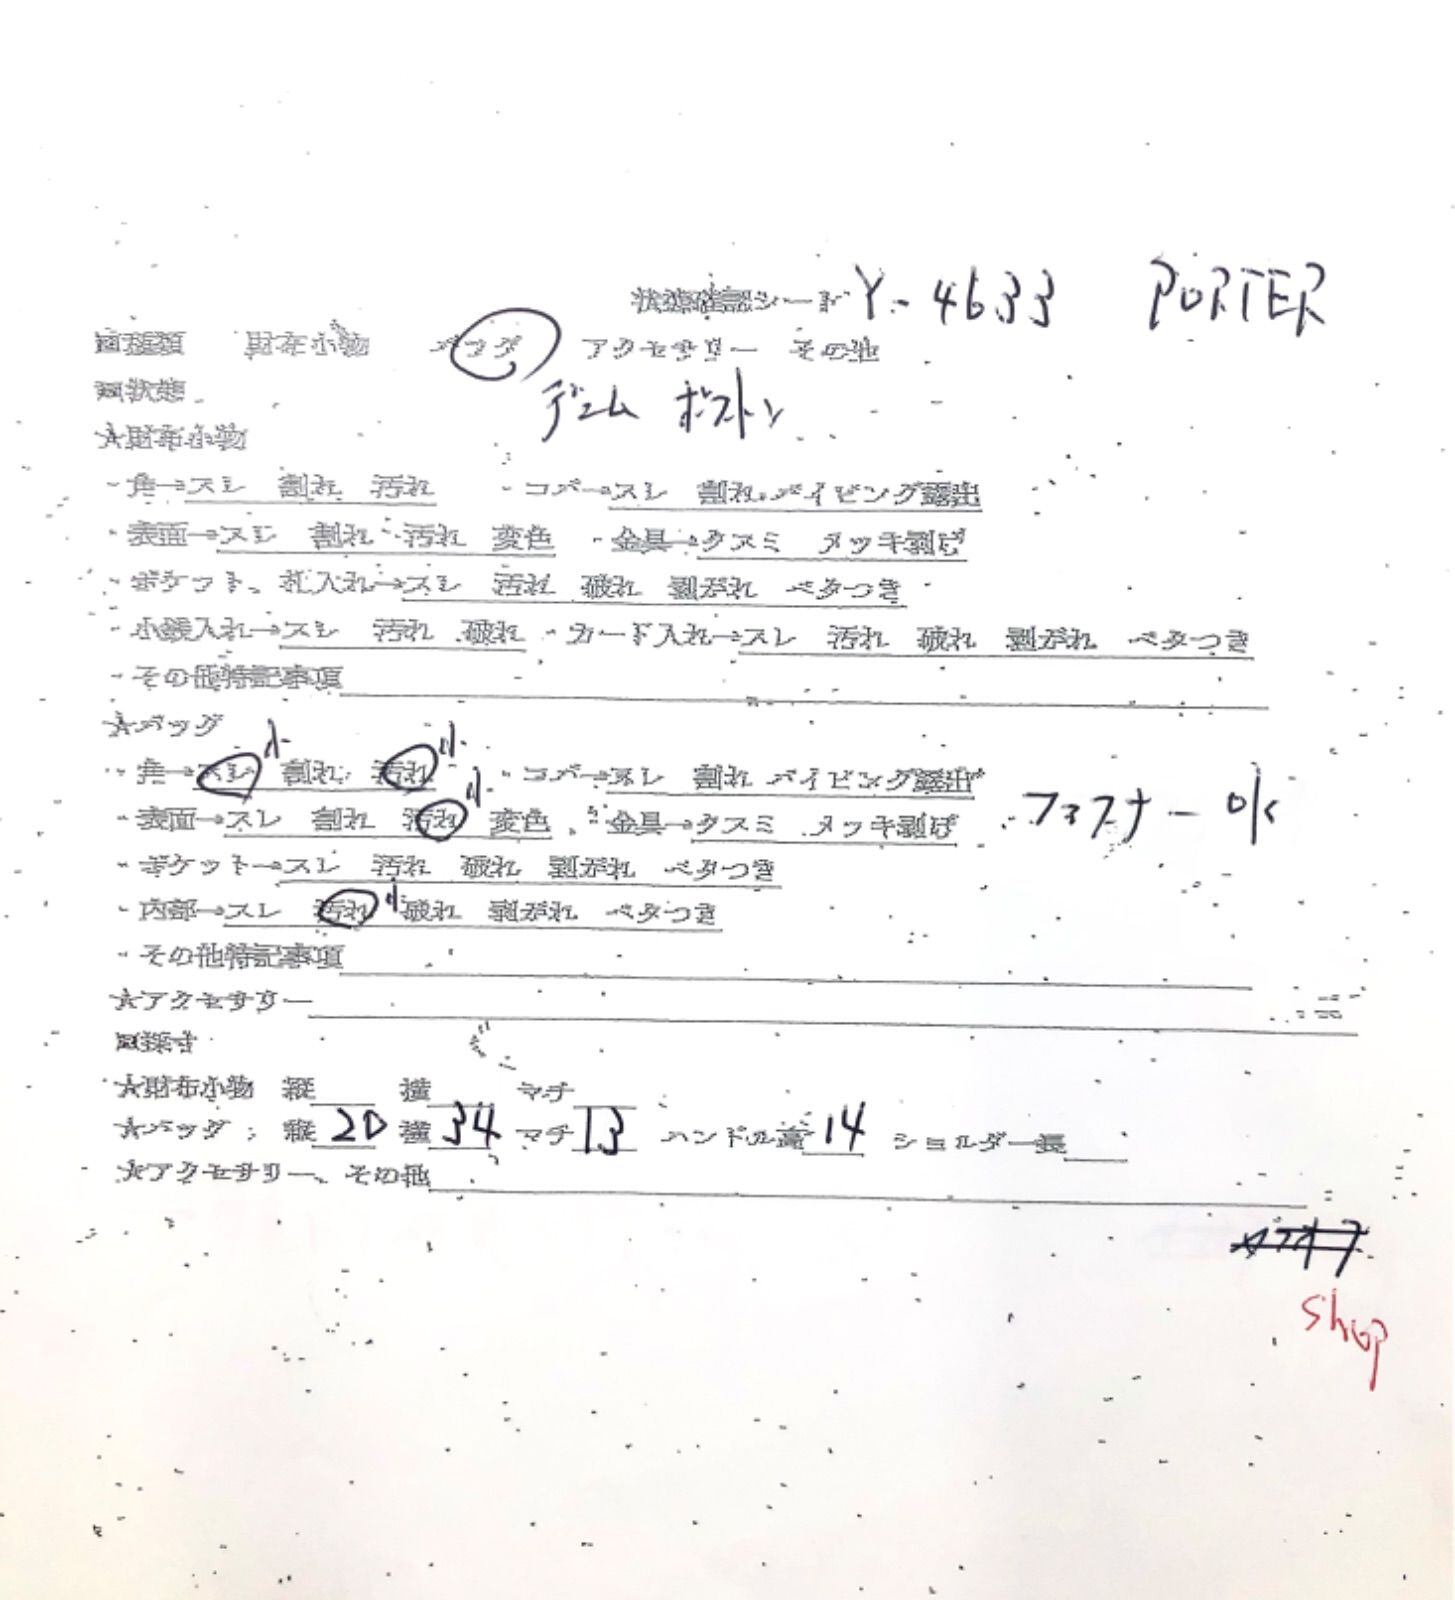 状態確認シート Y-4633 PORTER
■種類 財布小物 バッグ アクセサリー その他
■状態 デニム ボストン
★財布小物
・角→スレ 割れ 汚れ ・コバ→スレ 割れ パイピング露出
・表面→スレ 割れ 汚れ 変色 ・金具→クスミ メッキ剥げ
・ポケット、札入れ→スレ 汚れ 破れ 剥がれ ベタつき
・小銭入れ→スレ 汚れ 破れ ・カード入れ→スレ 汚れ 破れ 剥がれ ベタつき
・その他特記事項
★バッグ
・角→スレ 小 割れ 汚れ 小 ・コバ→スレ 割れ パイピング露出
・表面→スレ 割れ 汚れ 小 変色 ・金具→クスミ メッキ剥げ ファスナー OK
・ポケット→スレ 汚れ 破れ 剥がれ ベタつき
・内部→スレ 汚れ 小 破れ 剥がれ ベタつき
・その他特記事項
★アクセサリー
■採寸
★財布小物 縦 横 マチ
★バッグ 縦 20 横 34 マチ 13 ハンドル高 14 ショルダー長
★アクセサリー、その他
shop